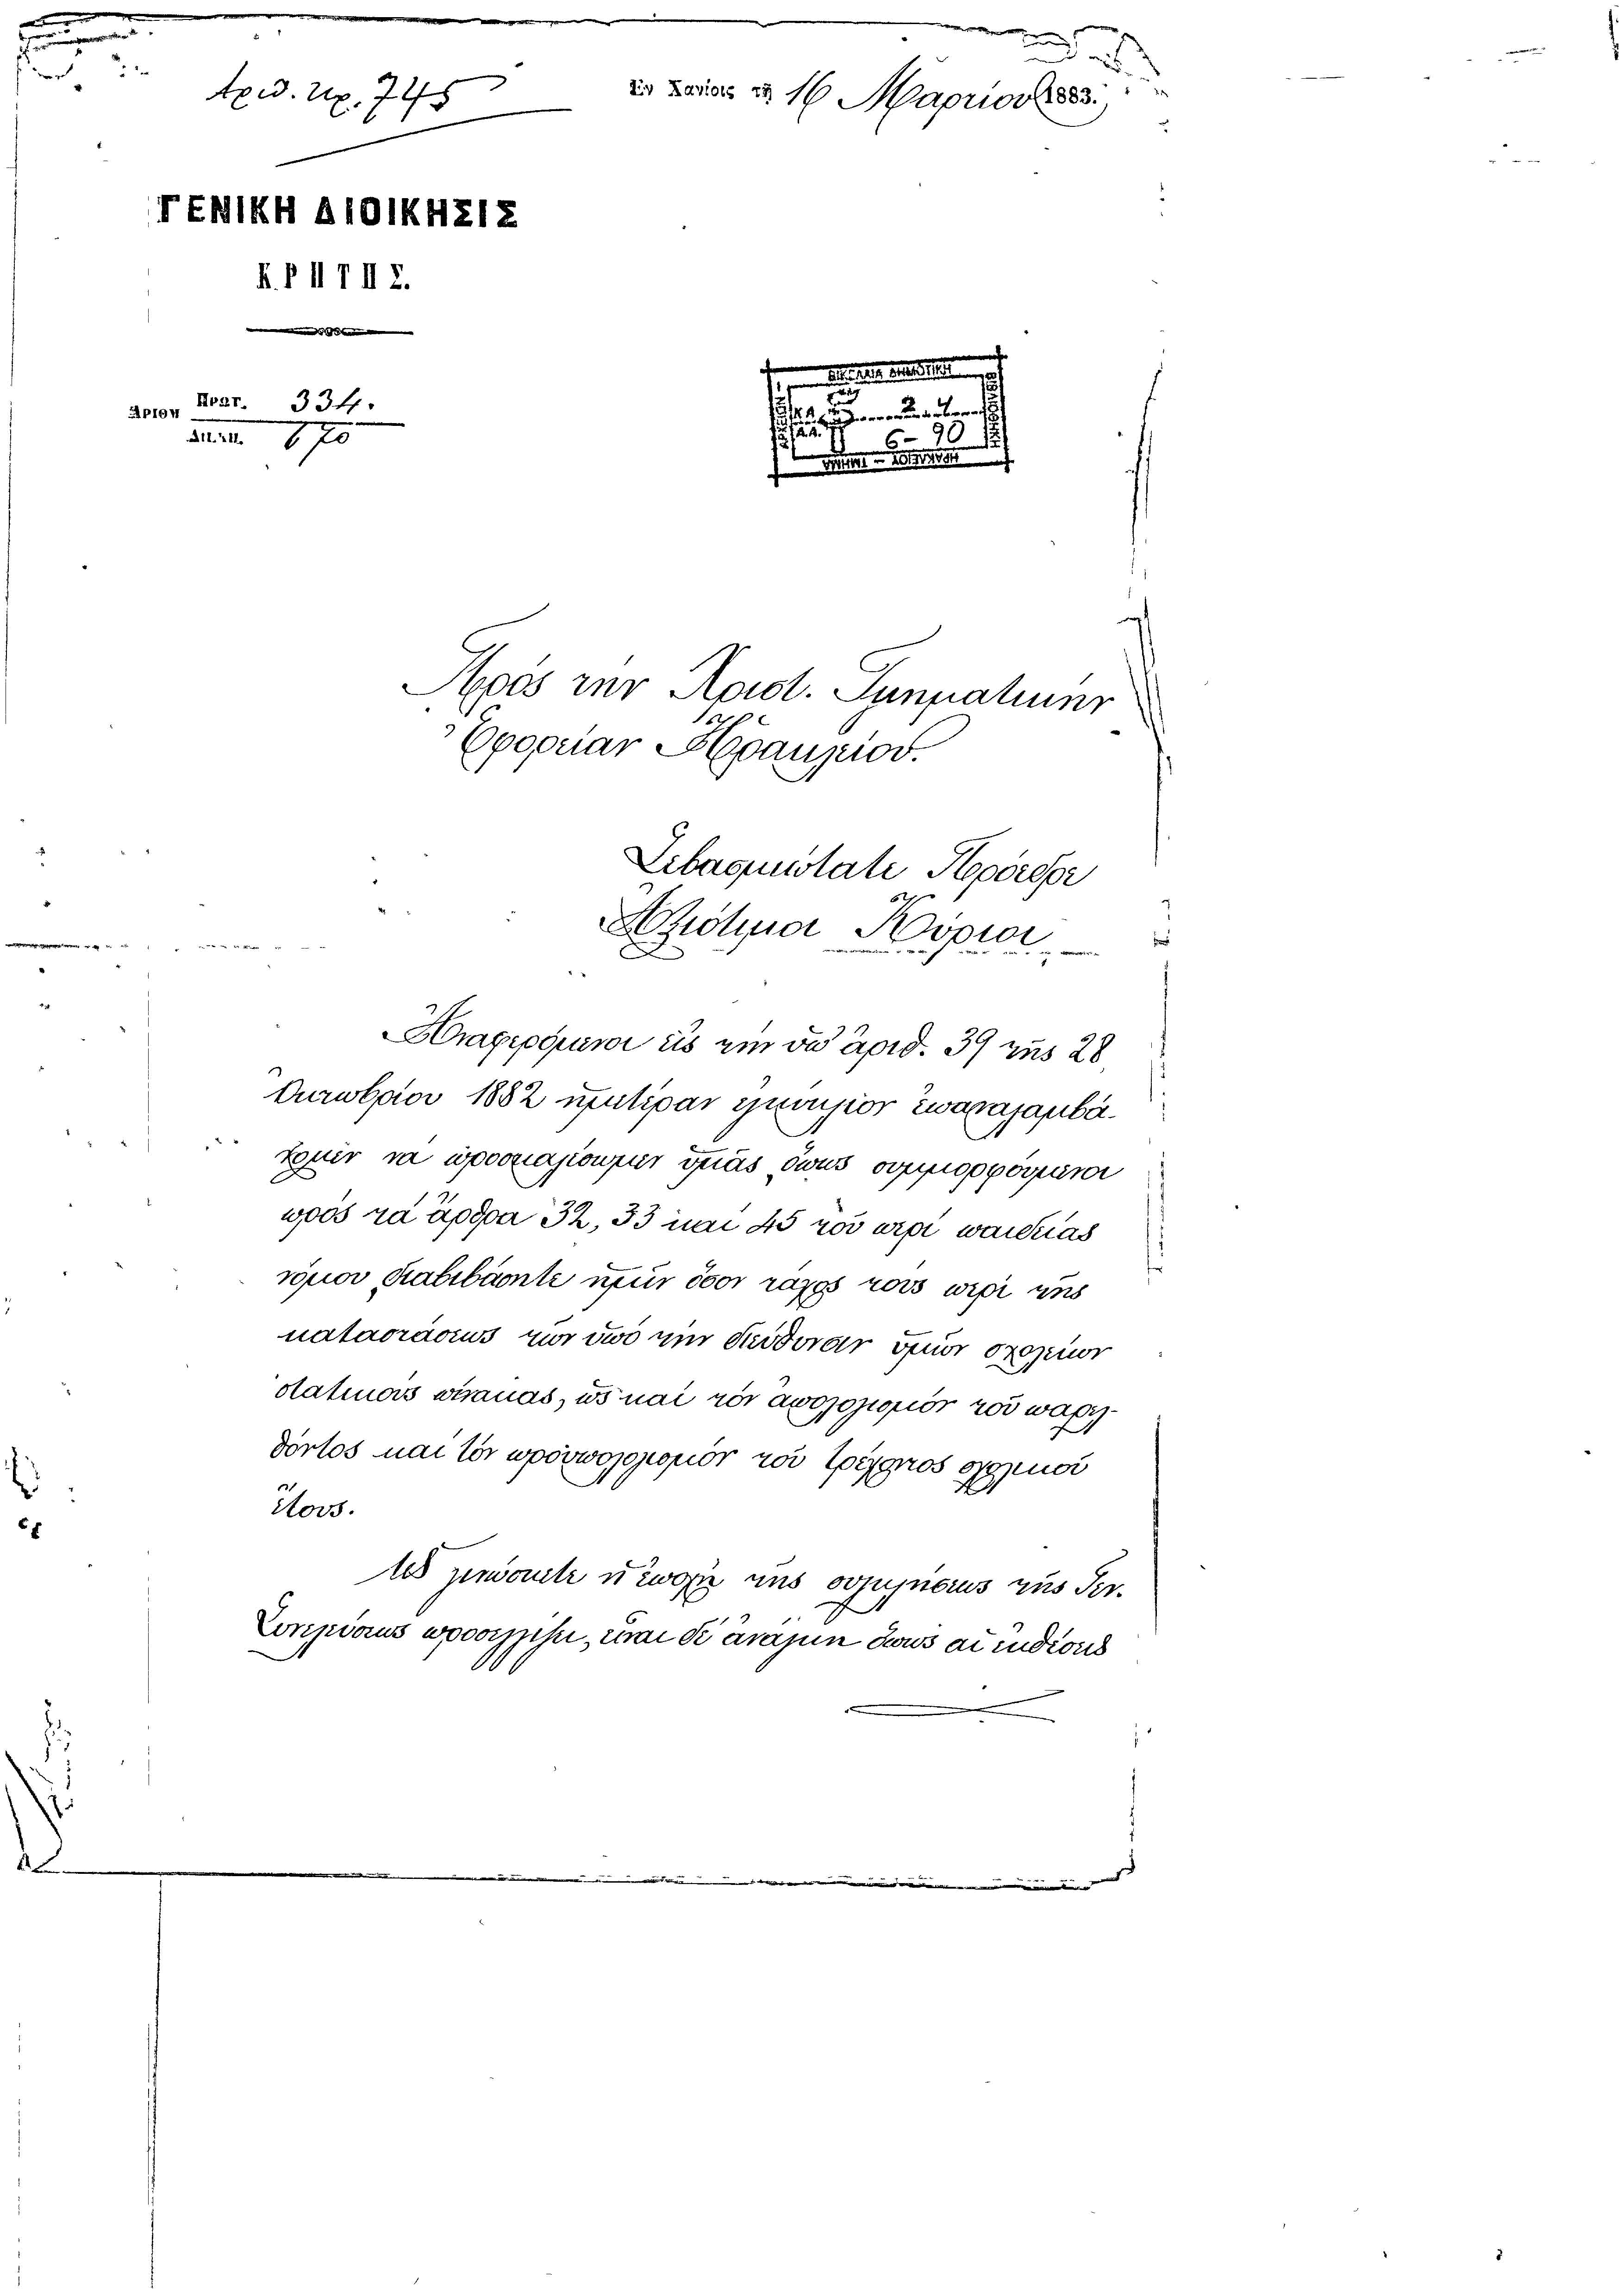 Αριθ. πρ. 745
Ἐν Χανίοις τῇ 16 Μαρτίου 1883.
ΓΕΝΙΚΗ ΔΙΟΙΚΗΣΙΣ
ΚΡΗΤΗΣ.
Πρωτ. 334.
Ἀριθ.
Διεκπ. 670
6-90
Πρὸς τὴν Χριστ. Δημοτικὴν
Ἐφορείαν Ἡρακλείου.
Σεβασμιώτατε Πρόεδρε
Ἀξιότιμοι Κύριοι
Ἀναφερόμενοι εἰς τὴν ὑπ' ἀριθ. 39 τῆς 28
Ὀκτωβρίου 1882 ἡμετέραν ἐγκύκλιον ἐπαναλαμβά-
νομεν νὰ προσκαλέσωμεν ὑμᾶς, ὅπως συμμορφούμενοι
πρὸς τὰ ἄρθρα 32, 33 καὶ 45 τοῦ περὶ παιδείας
νόμου, διαβιβάσητε ἡμῖν ὅσον τάχος τοὺς περὶ τῆς
καταστάσεως τῶν ὑπὸ τὴν διεύθυνσιν ὑμῶν σχολείων
στατικοὺς πίνακας, ὡς καὶ τὸν ἀπολογισμὸν τοῦ παρελ-
θόντος καὶ τὸν προϋπολογισμὸν τοῦ τρέχοντος σχολικοῦ
ἔτους.
Ὡς γινώσκετε ἡ ἐποχὴ τῆς συγκλήσεως τῆς Γεν.
Συνελεύσεως προσεγγίζει, εἶναι δὲ ἀνάγκη ὅπως αἱ ἐκθέσεις